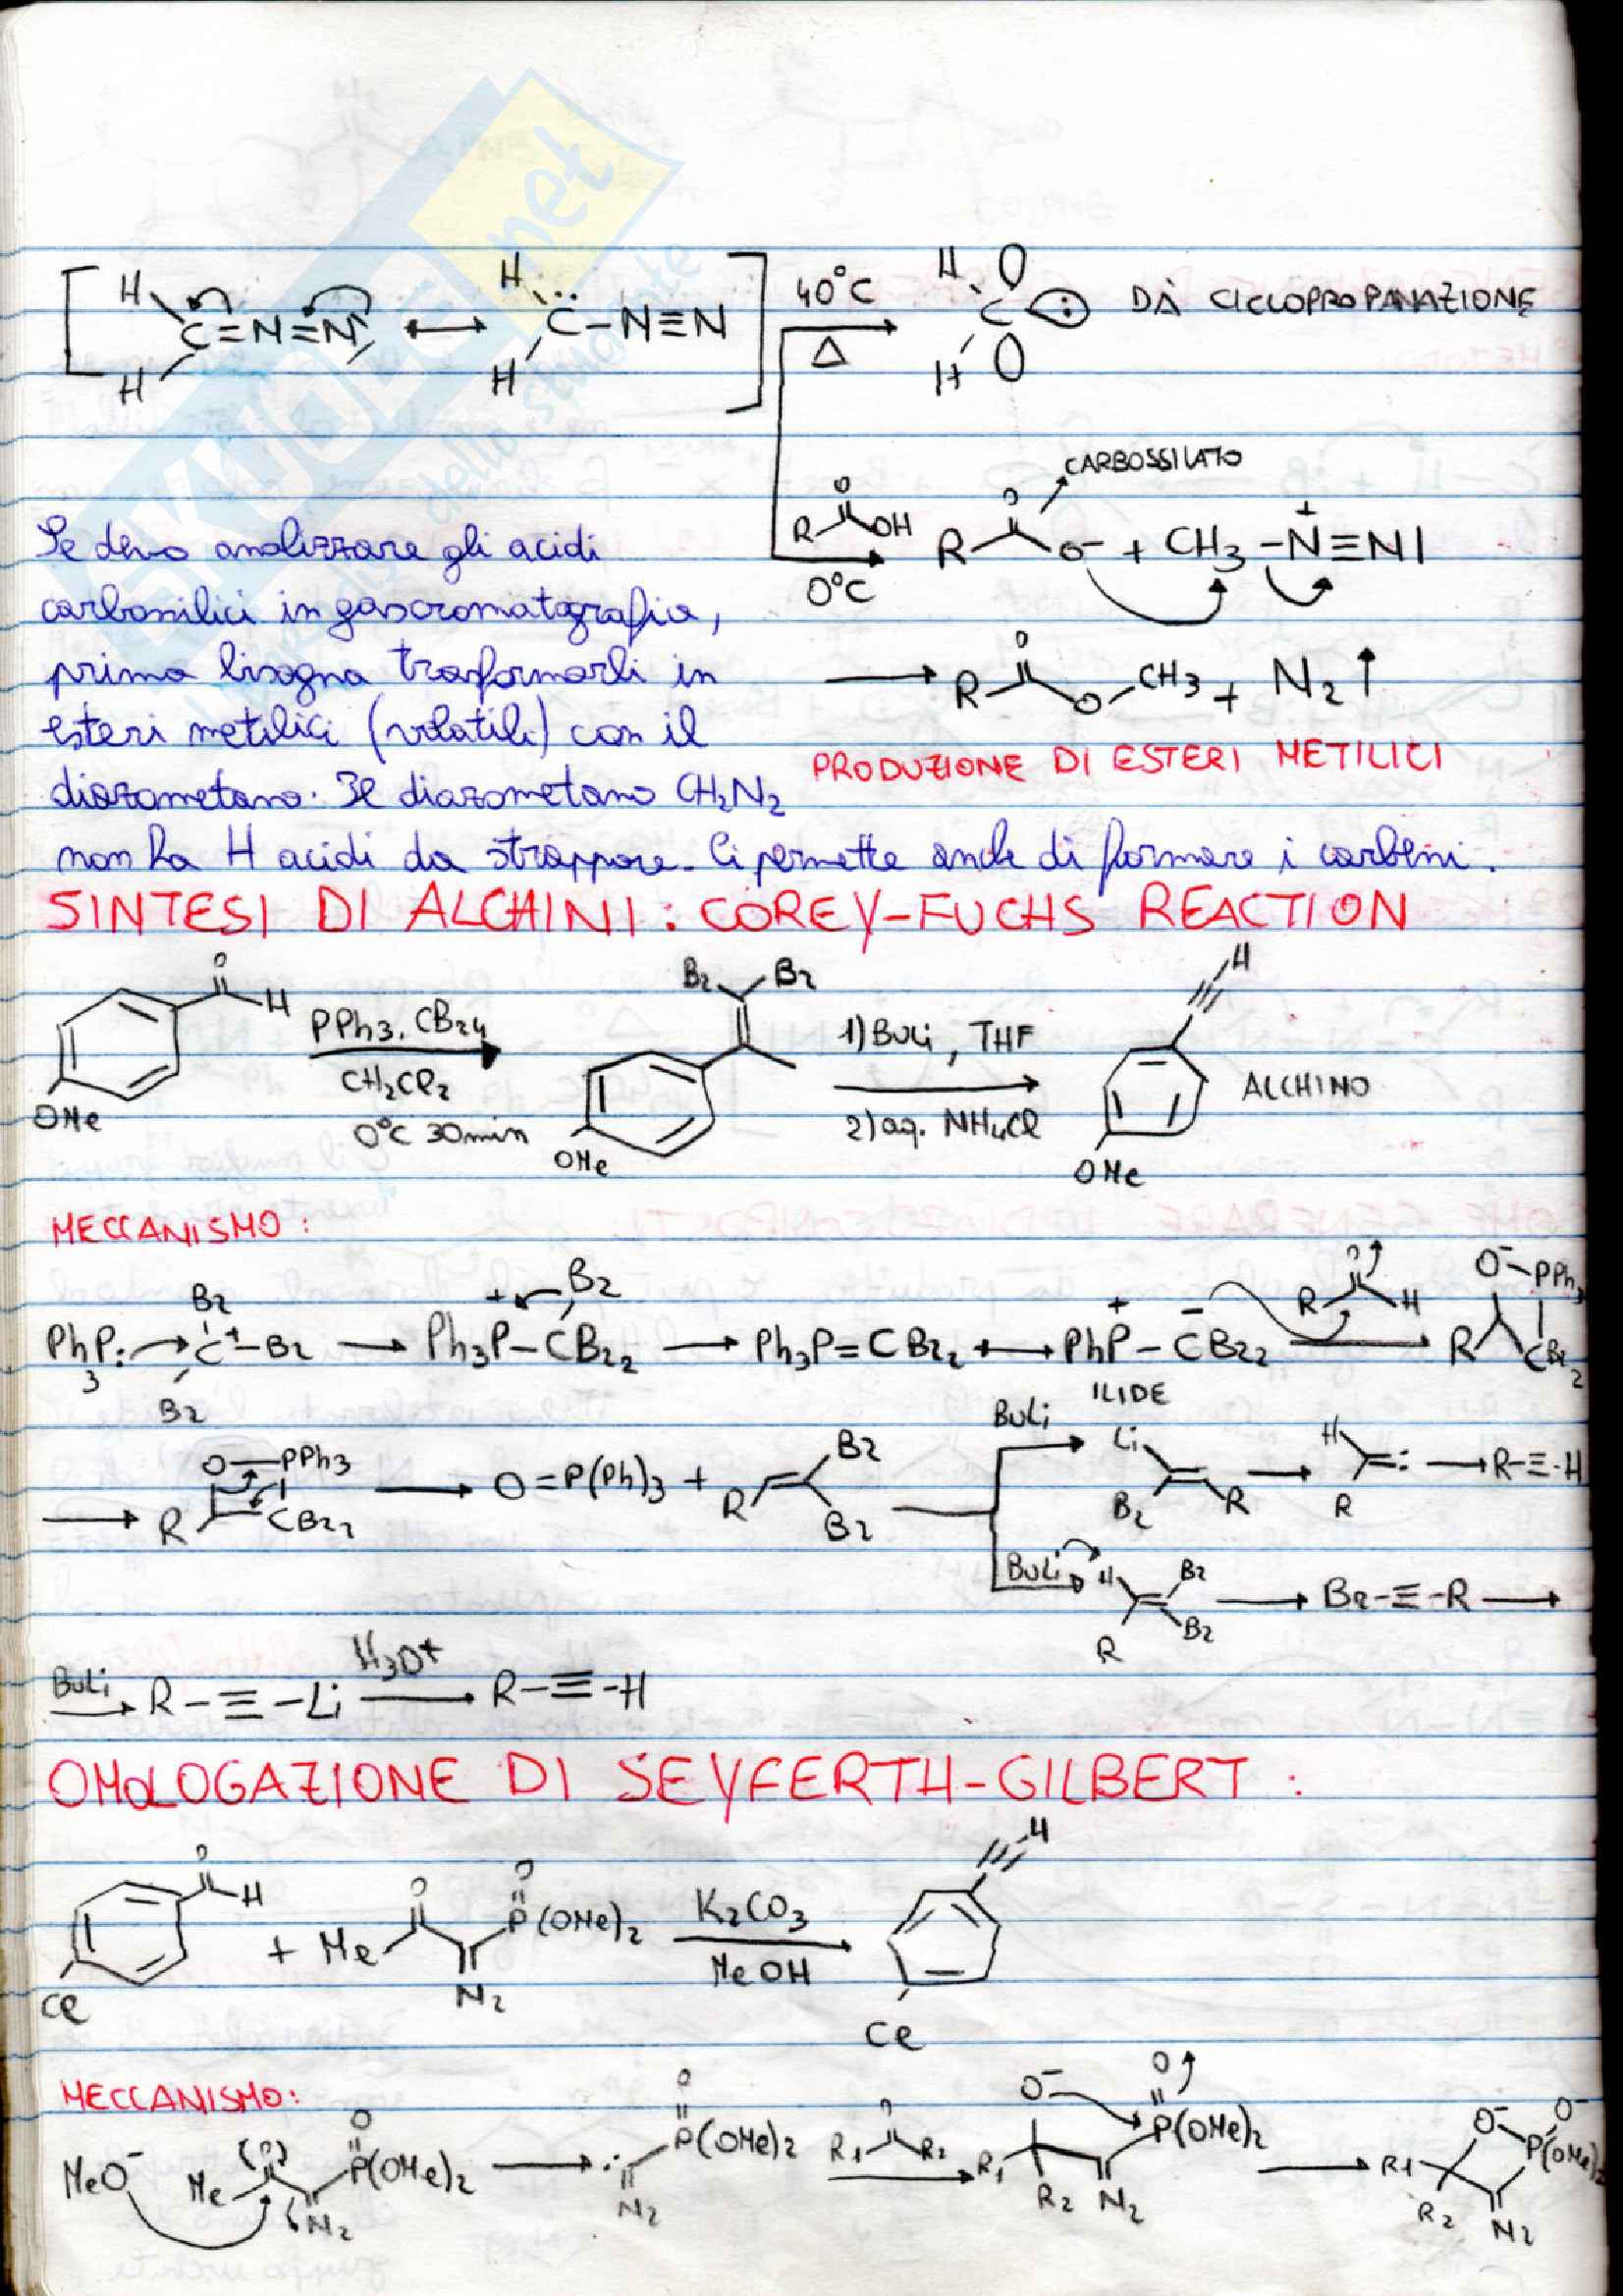 SKUOLA.net
dello studente
H
C=N=N
H
H
C-N≡N
H
40°C
Δ
H
C
H
DÀ CICLOPROPANAZIONE
CARBOSSILATO
R
O
OH
0°C
R
O
O⁻ + CH3-N⁺≡N|
Se devo analizzare gli acidi
carbossilici in gascromatografia,
prima bisogna trasformarli in
esteri metilici (volatili) con il
diazometano. Il diazometano CH2N2
non ha H acidi da strappare. Ci permette anche di formare i carbeni.
→ R
O
O-CH3 + N2↑
PRODUZIONE DI ESTERI METILICI
SINTESI DI ALCHINI: COREY-FUCHS REACTION
O
H
OMe
PPh3, CBr4
CH2Cl2
0°C 30min
Br Br
OMe
1) BuLi, THF
2) aq. NH4Cl
H
OMe
ALCHINO
MECCANISMO:
Ph3P: → Br C⁺-Br Br → Ph3P⁺-CBr2 Br → Ph3P=CBr2 ↔ PhP⁺-C⁻Br2 → R O⁻-PPh3 CBr2
R O H
ILIDE
→ R O-PPh3 CBr2 → O=P(Ph)3 + R Br Br
BuLi → Li Br R → H R : → R-≡-H
BuLi → H R Br Br → Br-≡-R →
BuLi → R-≡-Li H3O⁺ → R-≡-H
OMOLOGAZIONE DI SEYFERTH-GILBERT:
O
H
Cl
+ Me O N2 O P(OMe)2
K2CO3
MeOH
H
Cl
MECCANISMO:
MeO⁻ Me O N2 O P(OMe)2 → N2 O P(OMe)2
R1 O R2
→ O⁻ R1 R2 N2 O P(OMe)2 → R1 R2 O⁻ O⁻ P(OMe)2 N2